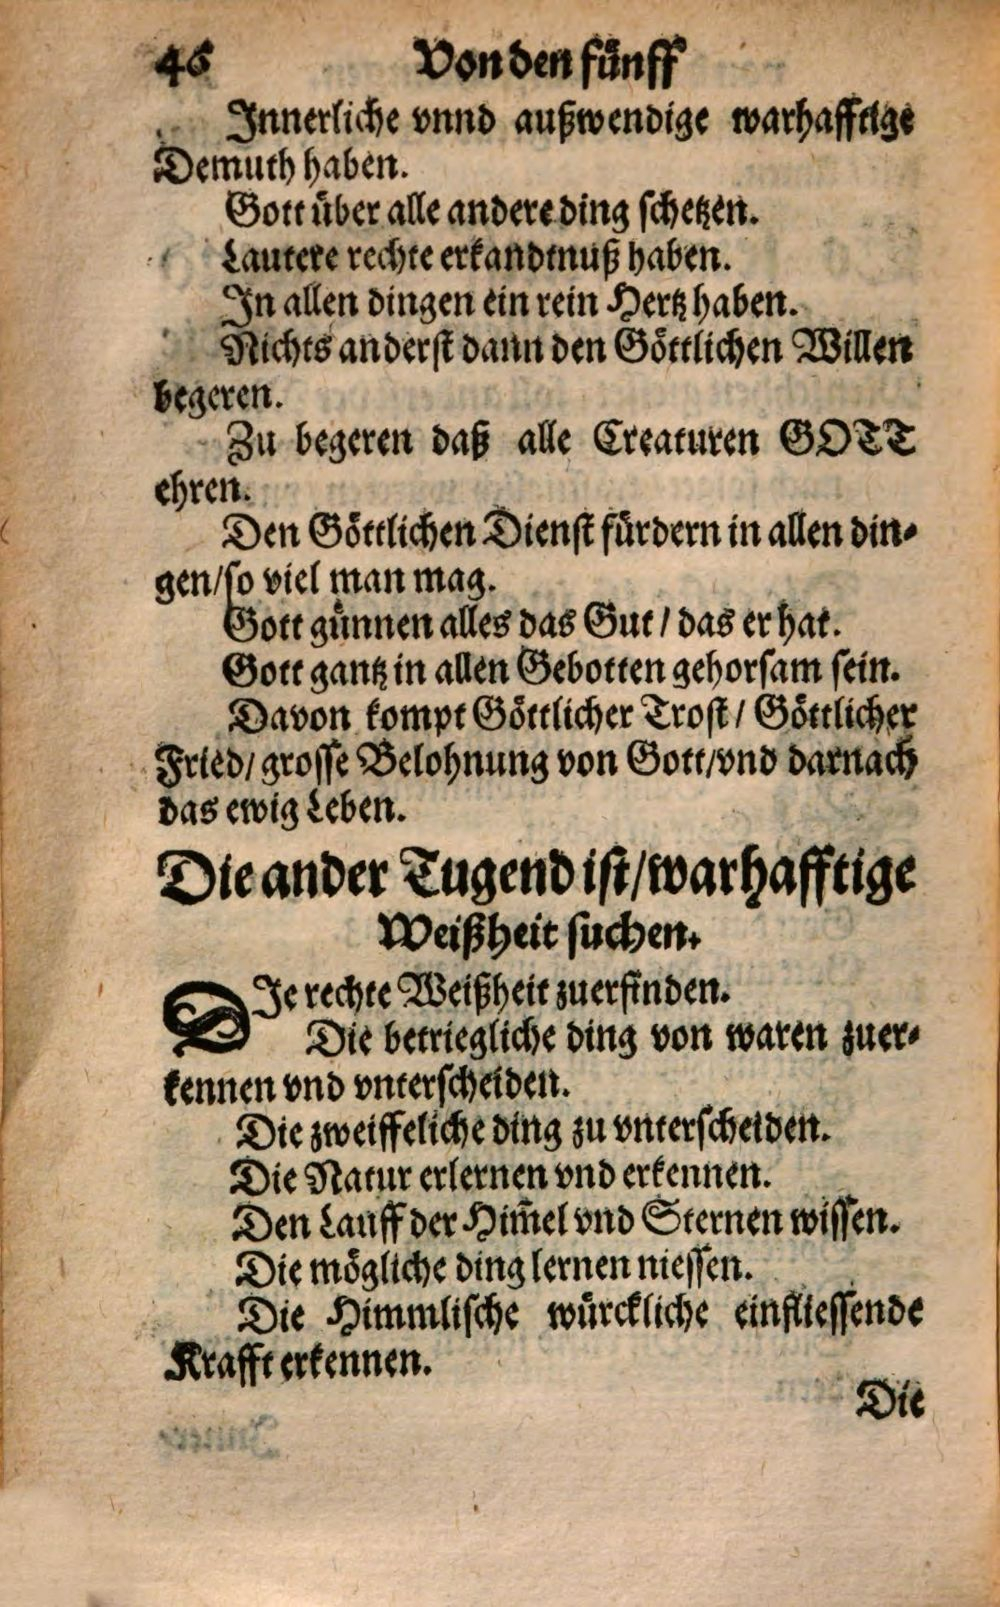 46 Von den fünff
Innerliche vnnd außwendige warhafftige
Demuth haben.
Gott über alle andere ding schetzen.
Lautere rechte erkandtnuß haben.
In allen dingen ein rein Hertz haben.
Nichts anderst dann den Göttlichen Willen
begeren.
Zu begeren daß alle Creaturen GOTT
ehren.
Den Göttlichen Dienst fürdern in allen din-
gen/so viel man mag.
Gott günnen alles das Gut / das er hat.
Gott gantz in allen Gebotten gehorsam sein.
Davon kompt Göttlicher Trost / Göttlicher
Fried/ grosse Belohnung von Gott/vnd darnach
das ewig Leben.
Die ander Tugend ist/warhafftige
Weißheit suchen.
DIe rechte Weißheit zuerfinden.
Die betriegliche ding von waren zuer-
kennen vnd vnterscheiden.
Die zweiffeliche ding zu vnterscheiden.
Die Natur erlernen vnd erkennen.
Den Lauff der Him̃el vnd Sternen wissen.
Die mögliche ding lernen niessen.
Die Himmlische würckliche einfliessende
Krafft erkennen.
Die